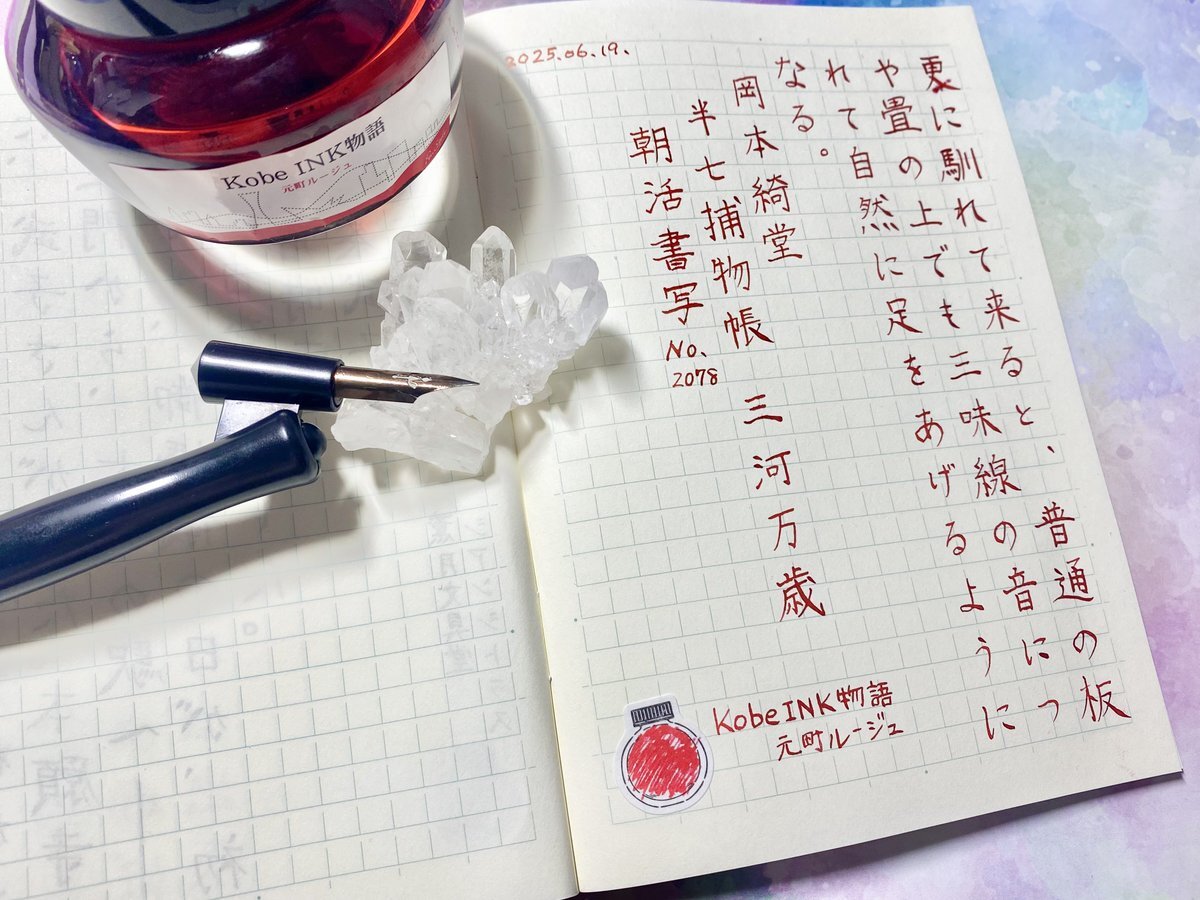 2025.06.19.
更に馴れて来ると、普通の板
や畳の上でも三味線の音につ
れて自然に足をあげるように
なる。
岡本綺堂
半七捕物帳 三河万歳
朝活書写 No. 2078
Kobe INK物語
元町ルージュ
Kobe INK物語
元町ルージュ